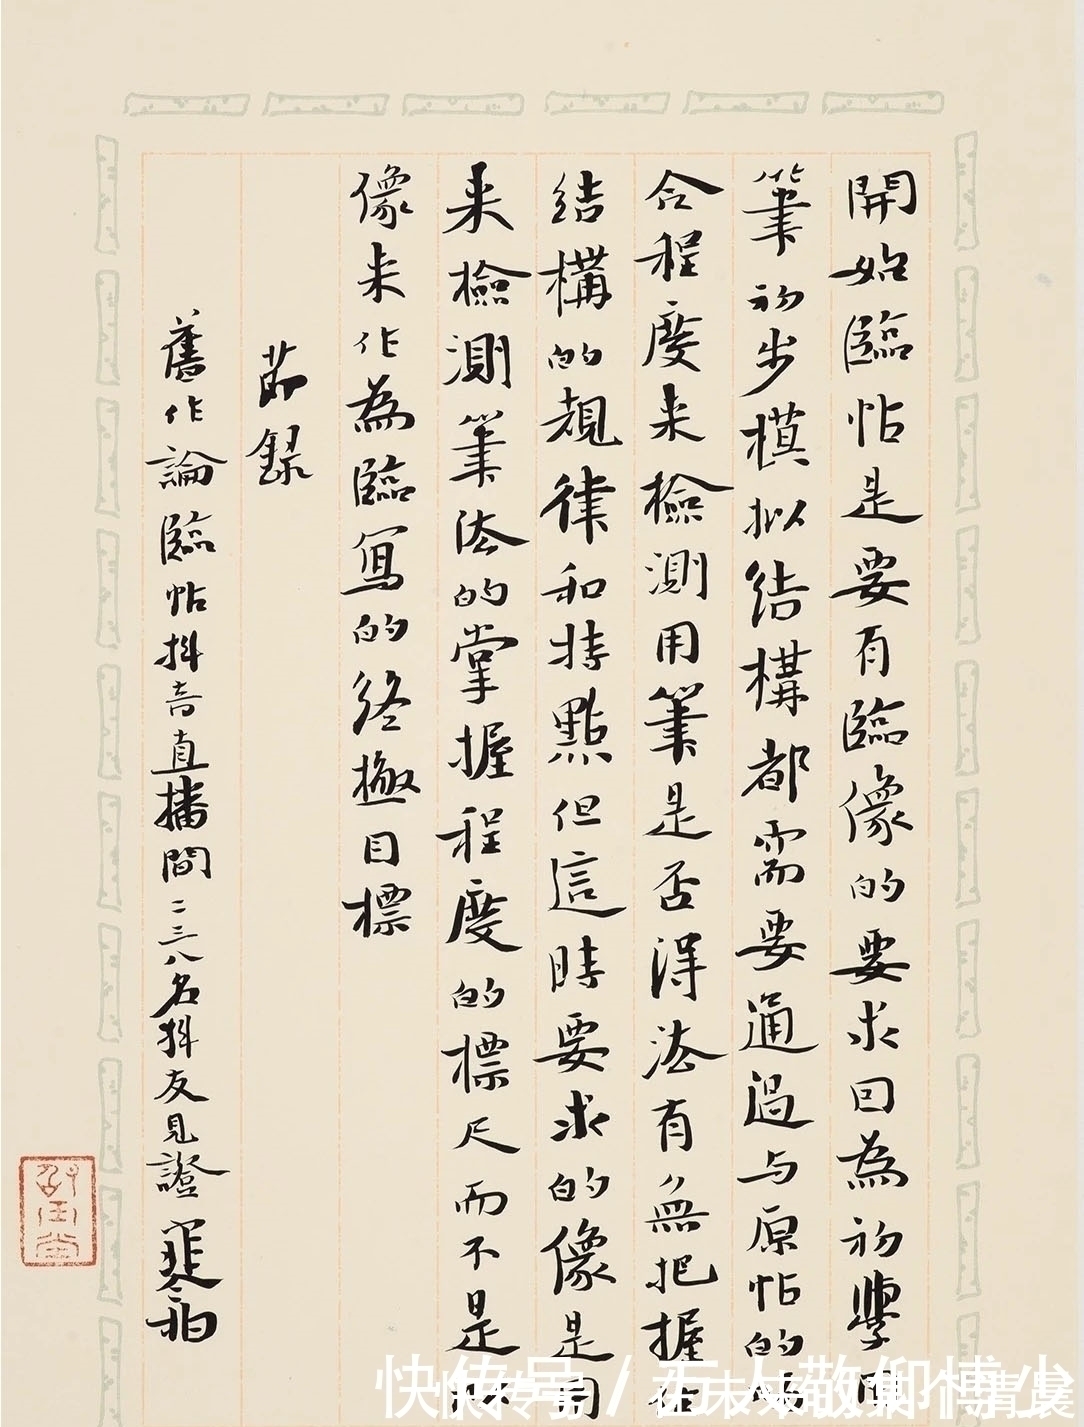 開始臨帖是要有臨像的要求因為初學用
筆初步模拟結構都需要通過与原帖的
合程度来檢測用筆是否得法有無把握住
結構的規律和特點但這時要求的像是用
来檢測筆法的掌握程度的標尺而不是以
像来作為臨寫的終極目標
節録
舊作論臨帖抖音直播間二三八名抖友見證
快传号 /